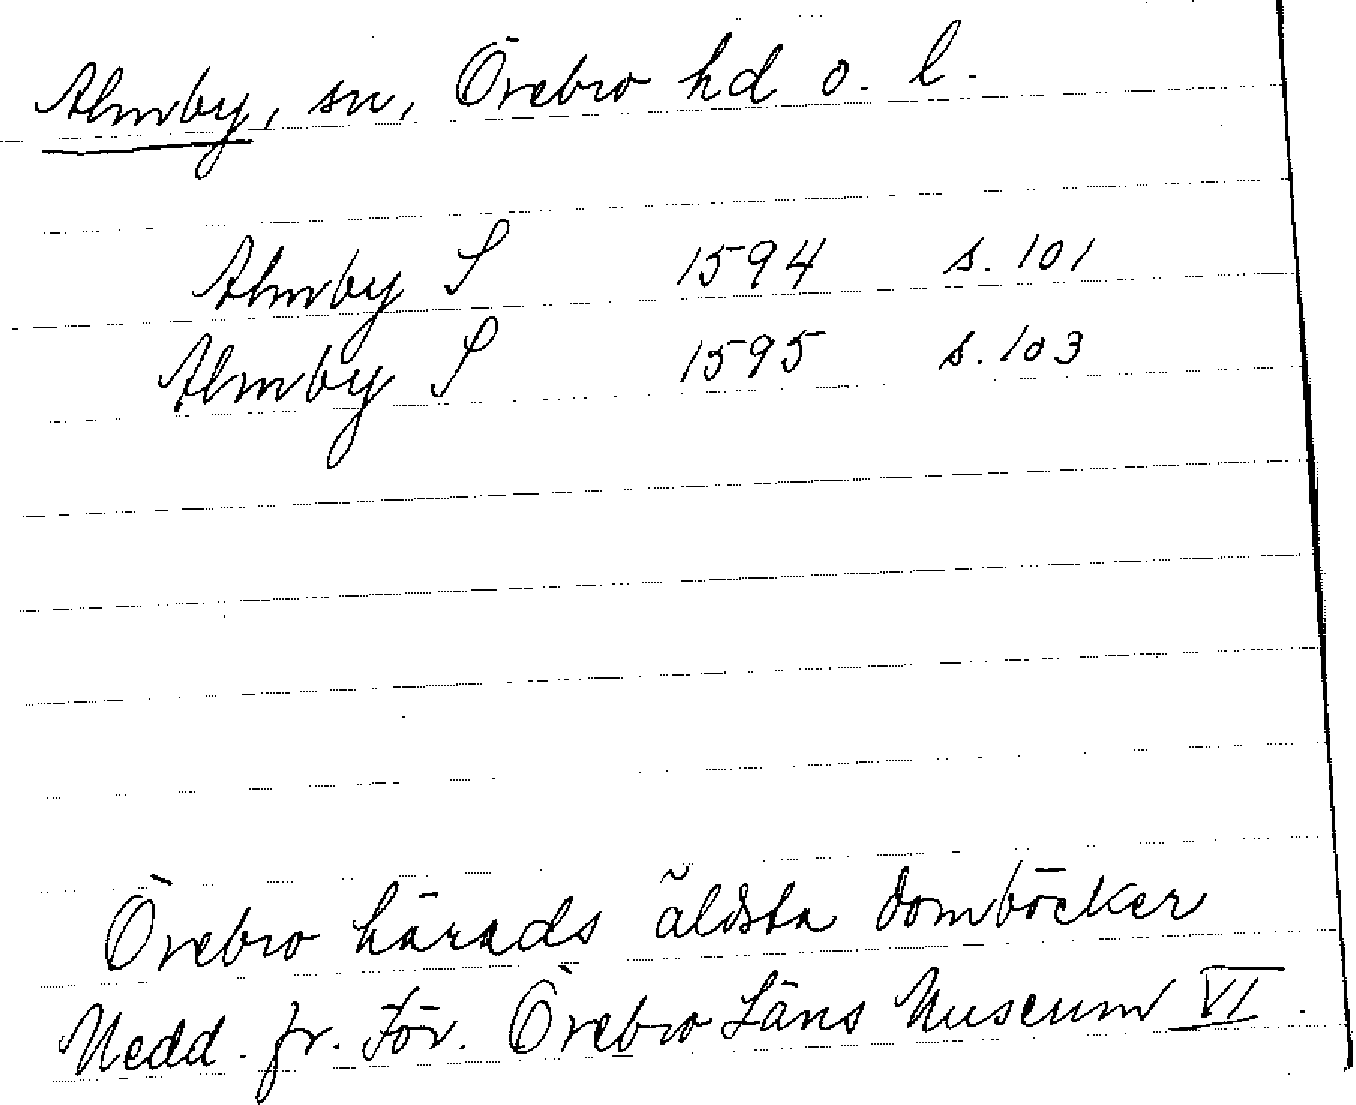 Almby, sn, Örebro hd o. l.
Almby S 1594 s. 101
Almby S 1595 s. 103
Örebro härads äldsta domböcker
Medd. fr. För. Örebro Läns Museum VI.